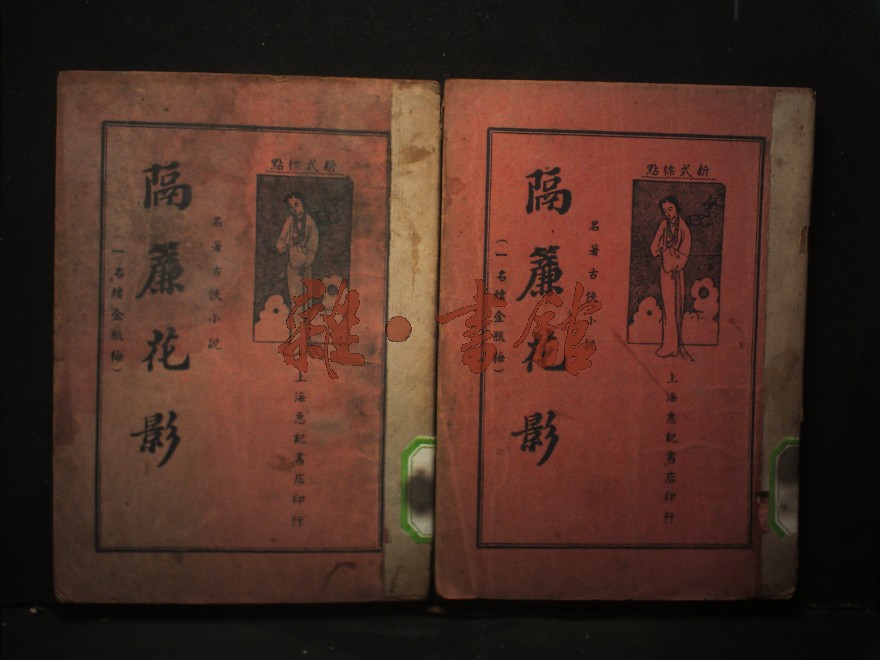 新式標點
上海惠記書店印行
名著古佚小說
隔簾花影
(一名續金瓶梅)
新式標點
上海惠記書店印行
名著古佚小說
隔簾花影
(一名續金瓶梅)
雜·書館